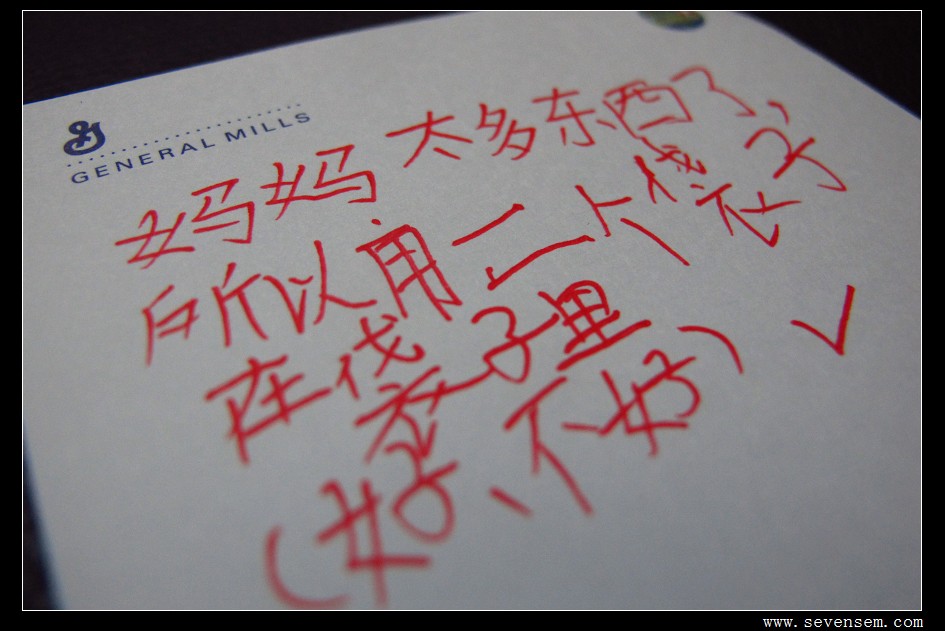 GENERAL MILLS
妈妈 太多东西了,
所以用二个袋子
在袋子里
(好不好) ✓
www.sevensem.com